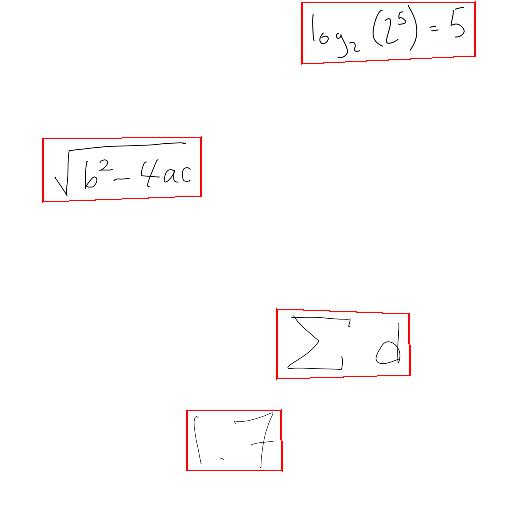 log₂(2⁵) = 5
√(b² − 4ac)
∑ d
1.7